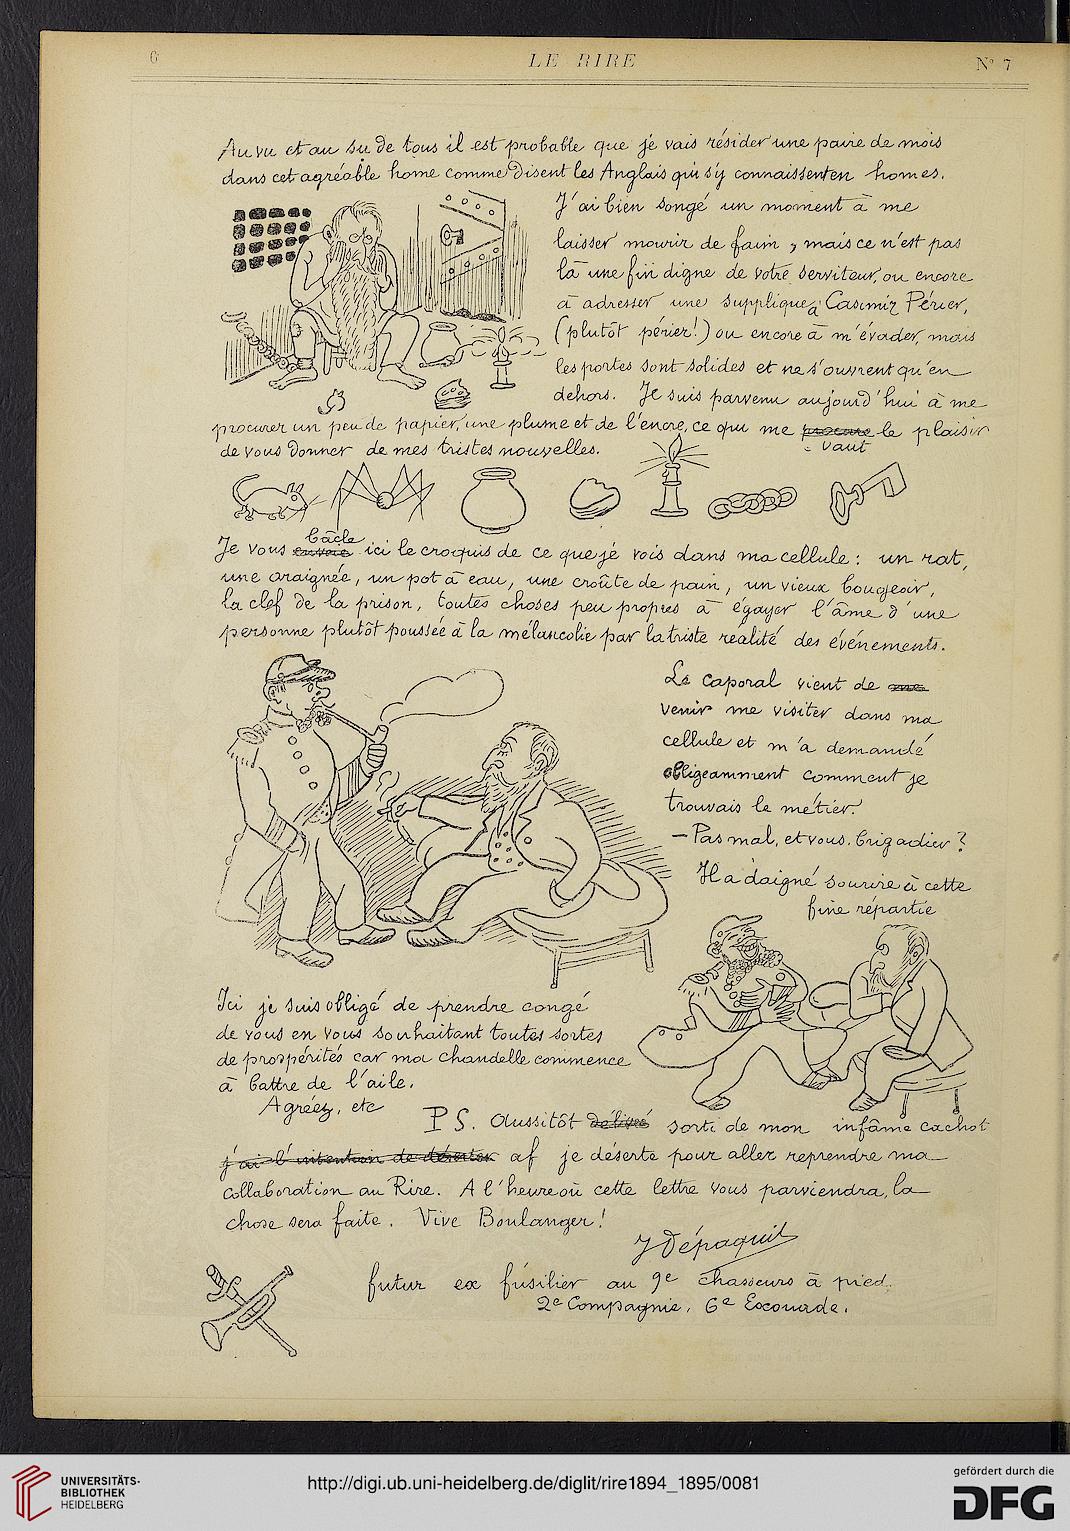 6
LE RIRE
N° 7
Au vu et au su de tous il est probable que je vais résider une paire de mois
dans cet agréable home comme disent les Anglais qui s'y connaissent en homes.
J'ai bien songé un moment à me
laisser mourir de faim, mais ce n'est pas
là une fin digne de votre serviteur, ou encore
à adresser une supplique à Casimir Périer,
(plutôt périer!) ou encore à m'évader, mais
les portes sont solides et ne s'ouvrent qu'en
dehors. Je suis parvenu aujourd'hui à me
procurer un peu de papier, une plume et de l'encre, ce qui me procure le plaisir
vaut
de vous donner de mes tristes nouvelles.
bâcle
Je vous envoie ici le croquis de ce que je vois dans ma cellule : un rat,
une araignée, un pot à eau, une croûte de pain, un vieux bougeoir,
la clef de la prison, toutes choses peu propres à égayer l'âme d'une
personne plutôt poussée à la mélancolie par la triste réalité des événements.
Le caporal vient de
venir me visiter dans ma
cellule et m'a demandé
obligeamment comment je
trouvais le métier.
— Pas mal, et vous, brigadier ?
Il a daigné sourire à cette
fine répartie
Ici je suis obligé de prendre congé
de vous en vous souhaitant toutes sortes
de prospérités car ma chandelle commence
à battre de l'aile.
Agréez, etc
PS. Aussitôt délivré sorti de mon infâme cachot
j'ai l'intention de déserter af je déserte pour aller reprendre ma
collaboration au Rire. A l'heure où cette lettre vous parviendra, la
chose sera faite. Vive Boulanger !
J Dépaquit
futur ex fusilier au 9e chasseurs à pied.
2e Compagnie, 6e Escouade.
UNIVERSITÄTS-
BIBLIOTHEK
HEIDELBERG
http://digi.ub.uni-heidelberg.de/diglit/rire1894_1895/0081
gefördert durch die
DFG